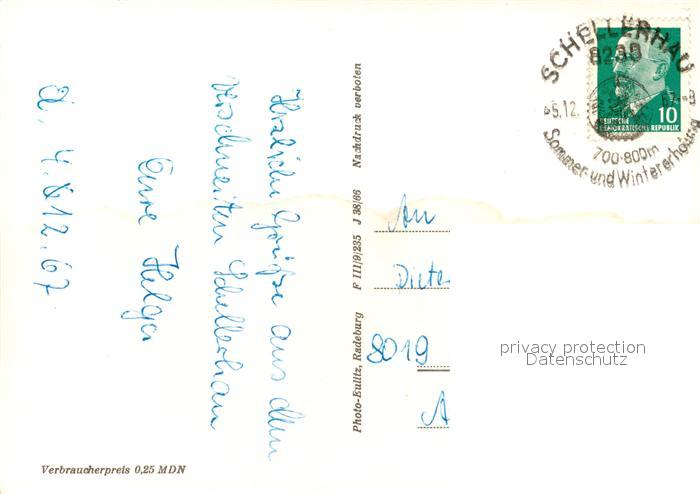 d. 4.12.67
Herzliche Grüße aus dem
verschneiten Schellerhau
Eure Helga
Verbraucherpreis 0,25 MDN
Photo-Eulitz, Radeburg F III/9/235 J 38/66 Nachdruck verboten
SCHELLERHAU
8239
5.12.
-9
700-800m
Sommer- und Wintererholung
10
DEUTSCHE
DEMOKRATISCHE REPUBLIK
An
Diete
8019
A
privacy protection
Datenschutz